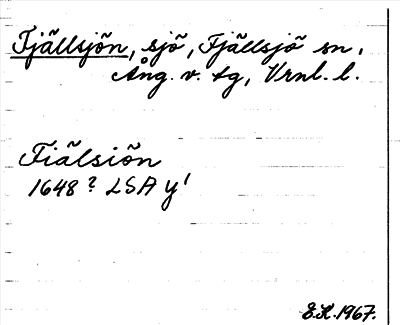 Fjällsjön, sjö, Fjällsjö sn,
Ång. v. tg, Vrnl. l.
Fiälsiön
1648? LSA y'
E.K. 1967.